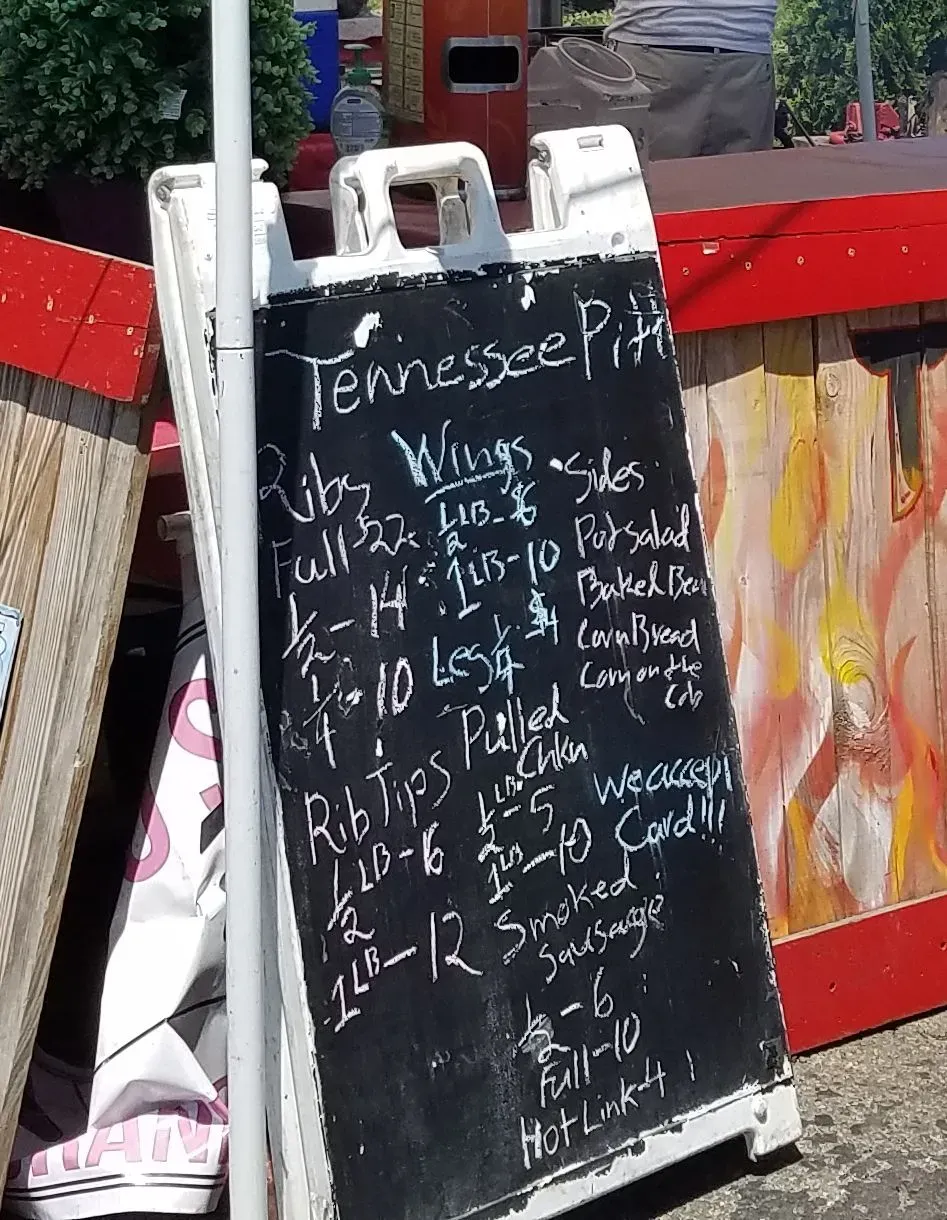 Tennessee Pitt
Ribs
Full $22
1/2 - 14
1/4 - 10
Rib Tips
1/2 LB - 6
1 LB - 12
Wings
1/2 LB - $6
1 LB - 10
Leg 1/4 - $4
Pulled
Chkn
1/2 LB. - 5
1 LB - 10
Smoked
Sausage
1/2 - 6
Full - 10
Hot Link - 4
Sides
Pot salad
Baked Bean
Corn Bread
Corn on the
Cob
We accept
Card!!!